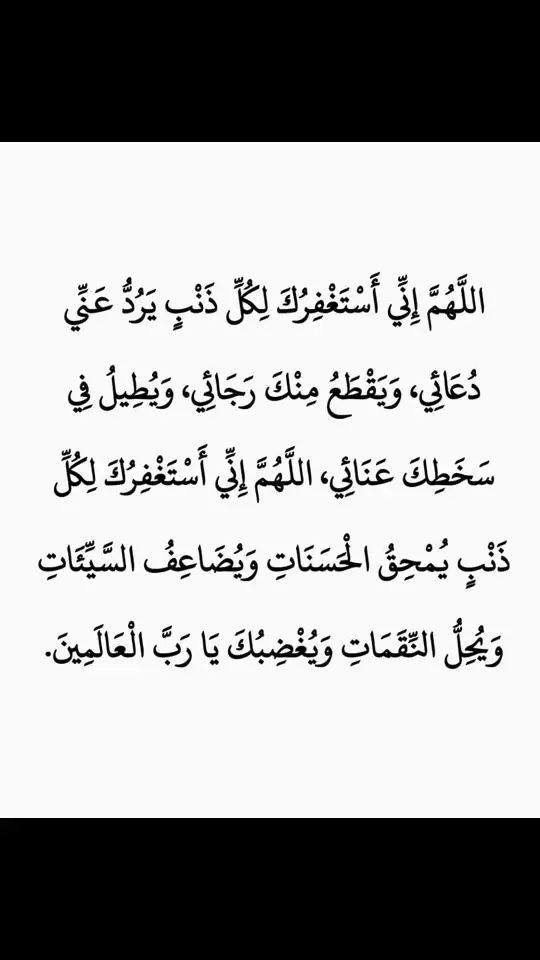 اللَّهُمَّ إِنِّي أَسْتَغْفِرُكَ لِكُلِّ ذَنْبٍ يَرُدُّ عَنِّي
دُعَائِي، وَيَقْطَعُ مِنْكَ رَجَائِي، وَيُطِيلُ فِي
سَخَطِكَ عَنَائِي، اللَّهُمَّ إِنِّي أَسْتَغْفِرُكَ لِكُلِّ
ذَنْبٍ يُمْحِقُ الْحَسَنَاتِ وَيُضَاعِفُ السَّيِّئَاتِ
وَيُحِلُّ النِّقَمَاتِ وَيُغْضِبُكَ يَا رَبَّ الْعَالَمِينَ.